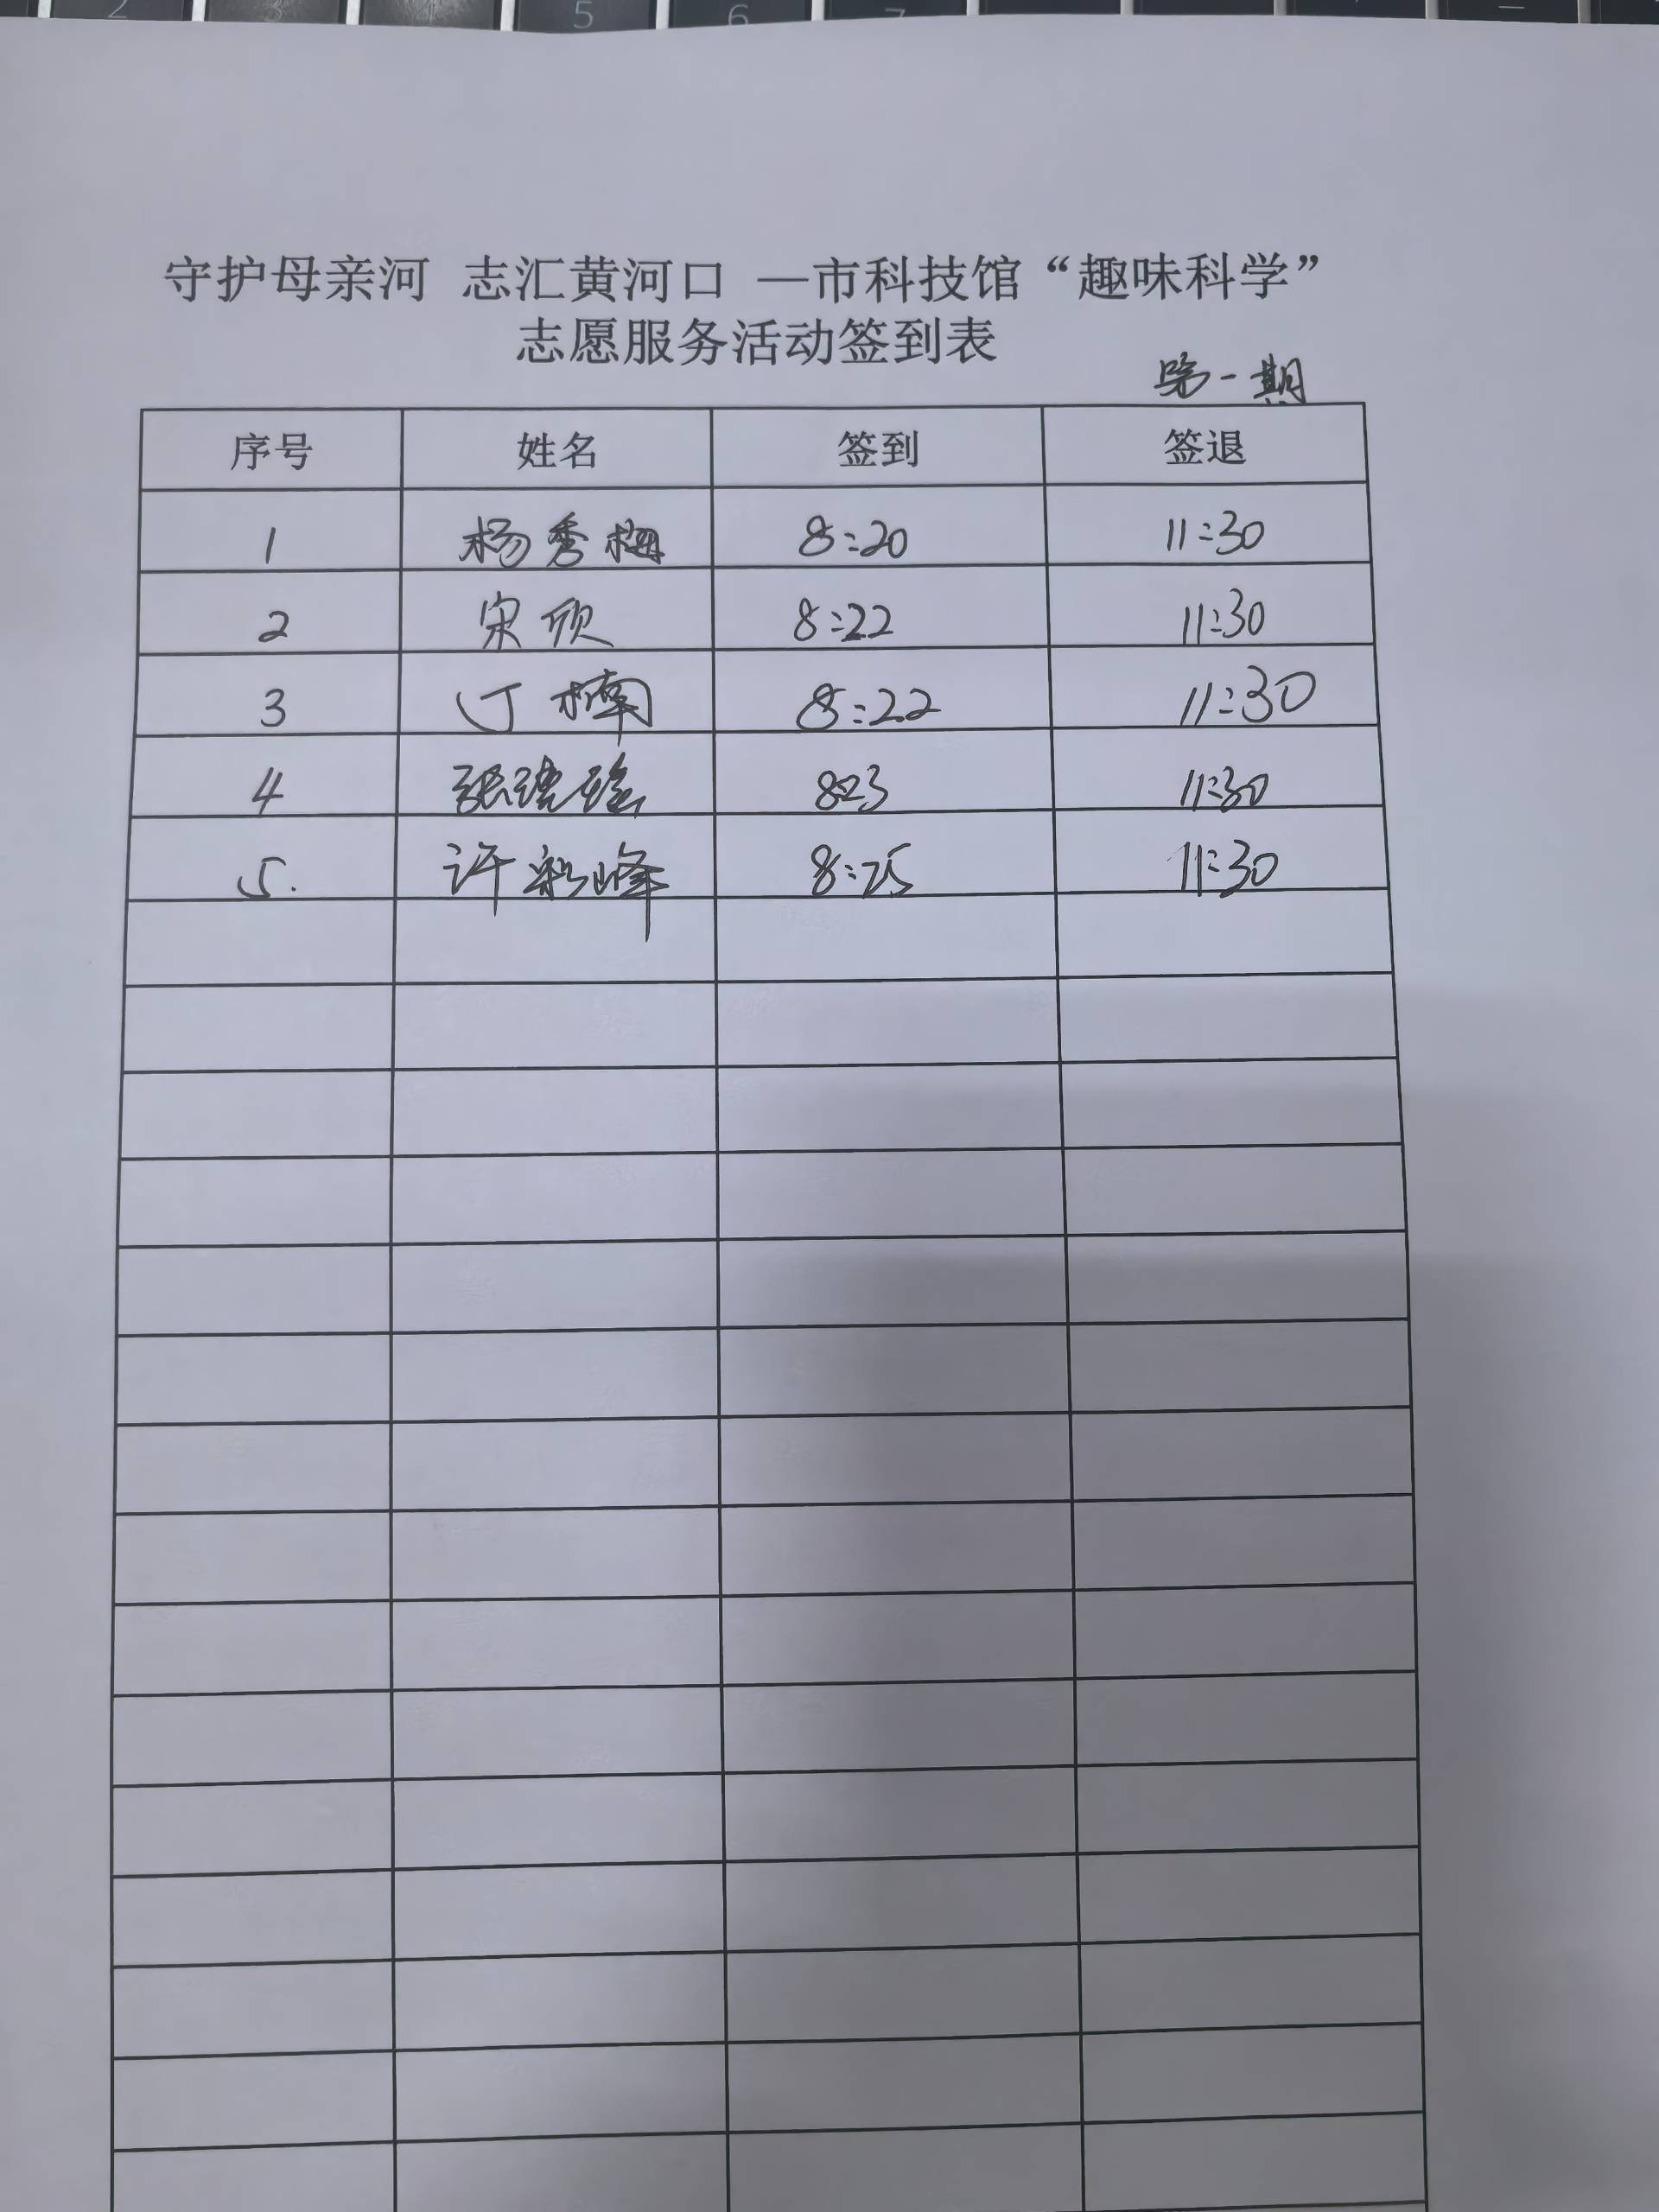 2 3 4 5 6 7
守护母亲河 志汇黄河口 —市科技馆“趣味科学”
志愿服务活动签到表
第一期
序号 姓名 签到 签退
1 杨秀梅 8:20 11:30
2 宋欣 8:22 11:30
3 丁楠 8:22 11:30
4 张 8:23 11:30
5. 许 峰 8:25 11:30